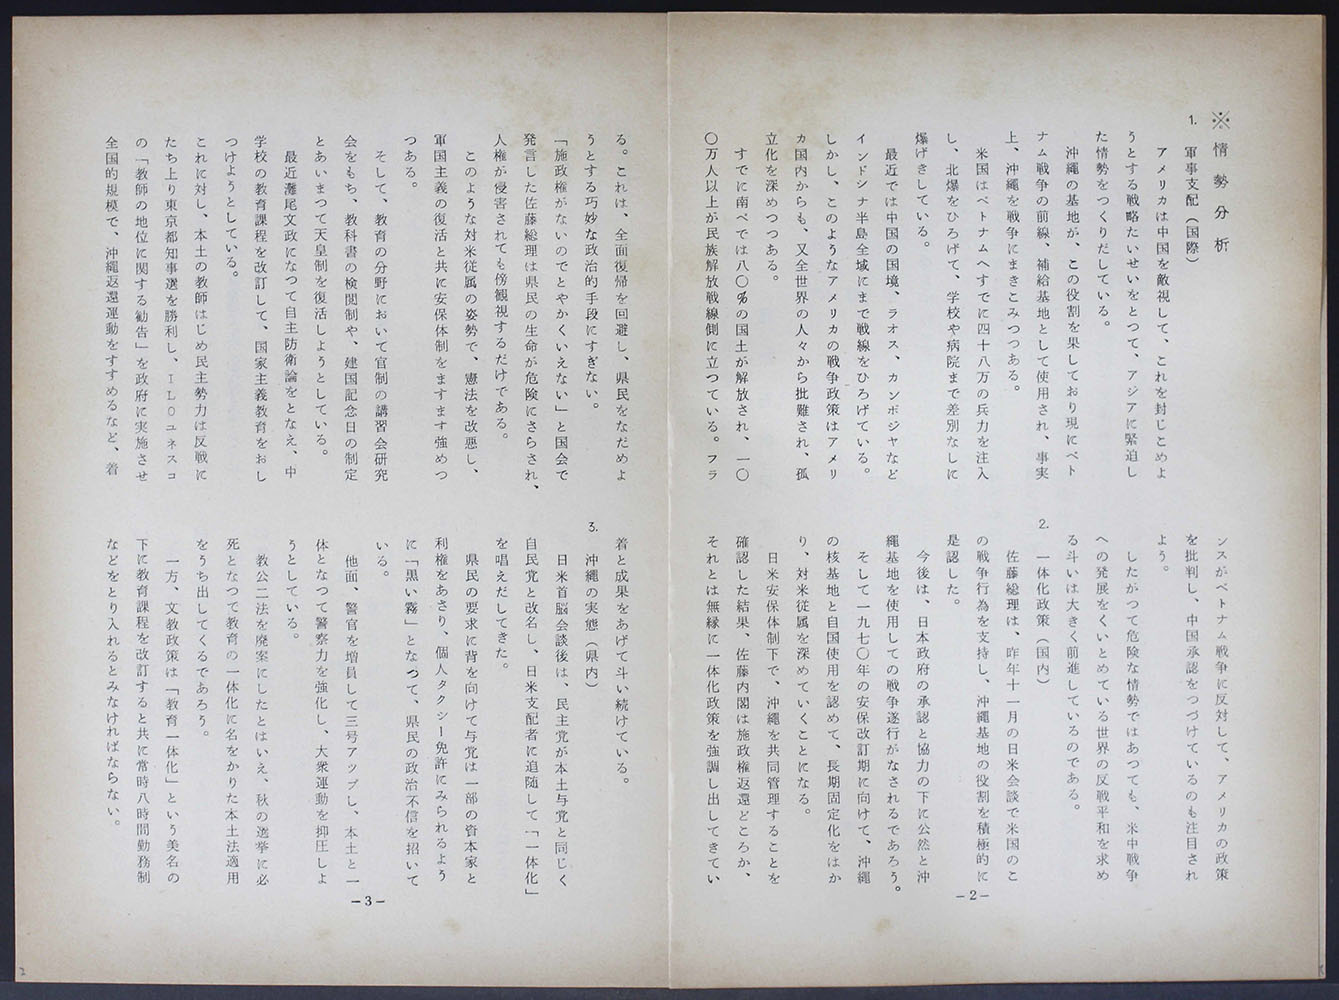 ※情勢分析
1. 軍事支配（国際）
アメリカは中国を敵視して、これを封じこめよ
うとする戦略たいせいをとつて、アジアに緊迫し
た情勢をつくりだしている。
沖縄の基地が、この役割を果しており現にベト
ナム戦争の前線、補給基地として使用され、事実
上、沖縄を戦争にまきこみつつある。
米国はベトナムへすでに四十八万の兵力を注入
し、北爆をひろげて、学校や病院まで差別なしに
爆げきしている。
最近では中国の国境、ラオス、カンボジヤなど
インドシナ半島全域にまで戦線をひろげている。
しかし、このようなアメリカの戦争政策はアメリ
カ国内からも、又全世界の人々から批難され、孤
立化を深めつつある。
すでに南ベでは八〇％の国土が解放され、一〇
〇万人以上が民族解放戦線側に立つている。フラ
ンスがベトナム戦争に反対して、アメリカの政策
を批判し、中国承認をつづけているのも注目され
よう。
したがつて危険な情勢ではあつても、米中戦争
への発展をくいとめている世界の反戦平和を求め
る斗いは大きく前進しているのである。
2. 一体化政策（国内）
佐藤総理は、昨年十一月の日米会談で米国のこ
の戦争行為を支持し、沖縄基地の役割を積極的に
是認した。
今後は、日本政府の承認と協力の下に公然と沖
縄基地を使用しての戦争遂行がなされるであろう。
そして一九七〇年の安保改訂期に向けて、沖縄
の核基地と自国使用を認めて、長期固定化をはか
り、対米従属を深めていくことになる。
日米安保体制下で、沖縄を共同管理することを
確認した結果、佐藤内閣は施政権返還どころか、
それとは無縁に一体化政策を強調し出してきてい
－2－
る。これは、全面復帰を回避し、県民をなだめよ
うとする巧妙な政治的手段にすぎない。
「施政権がないのでとやかくいえない」と国会で
発言した佐藤総理は県民の生命が危険にさらされ、
人権が侵害されても傍観視するだけである。
このような対米従属の姿勢で、憲法を改悪し、
軍国主義の復活と共に安保体制をますます強めつ
つある。
そして、教育の分野において官制の講習会研究
会をもち、教科書の検閲制や、建国記念日の制定
とあいまつて天皇制を復活しようとしている。
最近灘尾文政になつて自主防衛論をとなえ、中
学校の教育課程を改訂して、国家主義教育をおし
つけようとしている。
これに対し、本土の教師はじめ民主勢力は反戦に
たち上り東京都知事選を勝利し、ＩＬＯユネスコ
の「教師の地位に関する勧告」を政府に実施させ
全国的規模で、沖縄返還運動をすすめるなど、着
着と成果をあげて斗い続けている。
3. 沖縄の実態（県内）
日米首脳会談後は、民主党が本土与党と同じく
自民党と改名し、日米支配者に追随して「一体化」
を唱えだしてきた。
県民の要求に背を向けて与党は一部の資本家と
利権をあさり、個人タクシー免許にみられるよう
に「黒い霧」となつて、県民の政治不信を招いて
いる。
他面、警官を増員して三号アップし、本土と一
体となつて警察力を強化し、大衆運動を抑圧しよ
うとしている。
教公二法を廃案にしたとはいえ、秋の選挙に必
死となつて教育の一体化に名をかりた本土法適用
をうち出してくるであろう。
一方、文教政策は「教育一体化」という美名の
下に教育課程を改訂すると共に常時八時間勤務制
などをとり入れるとみなければならない。
－3－